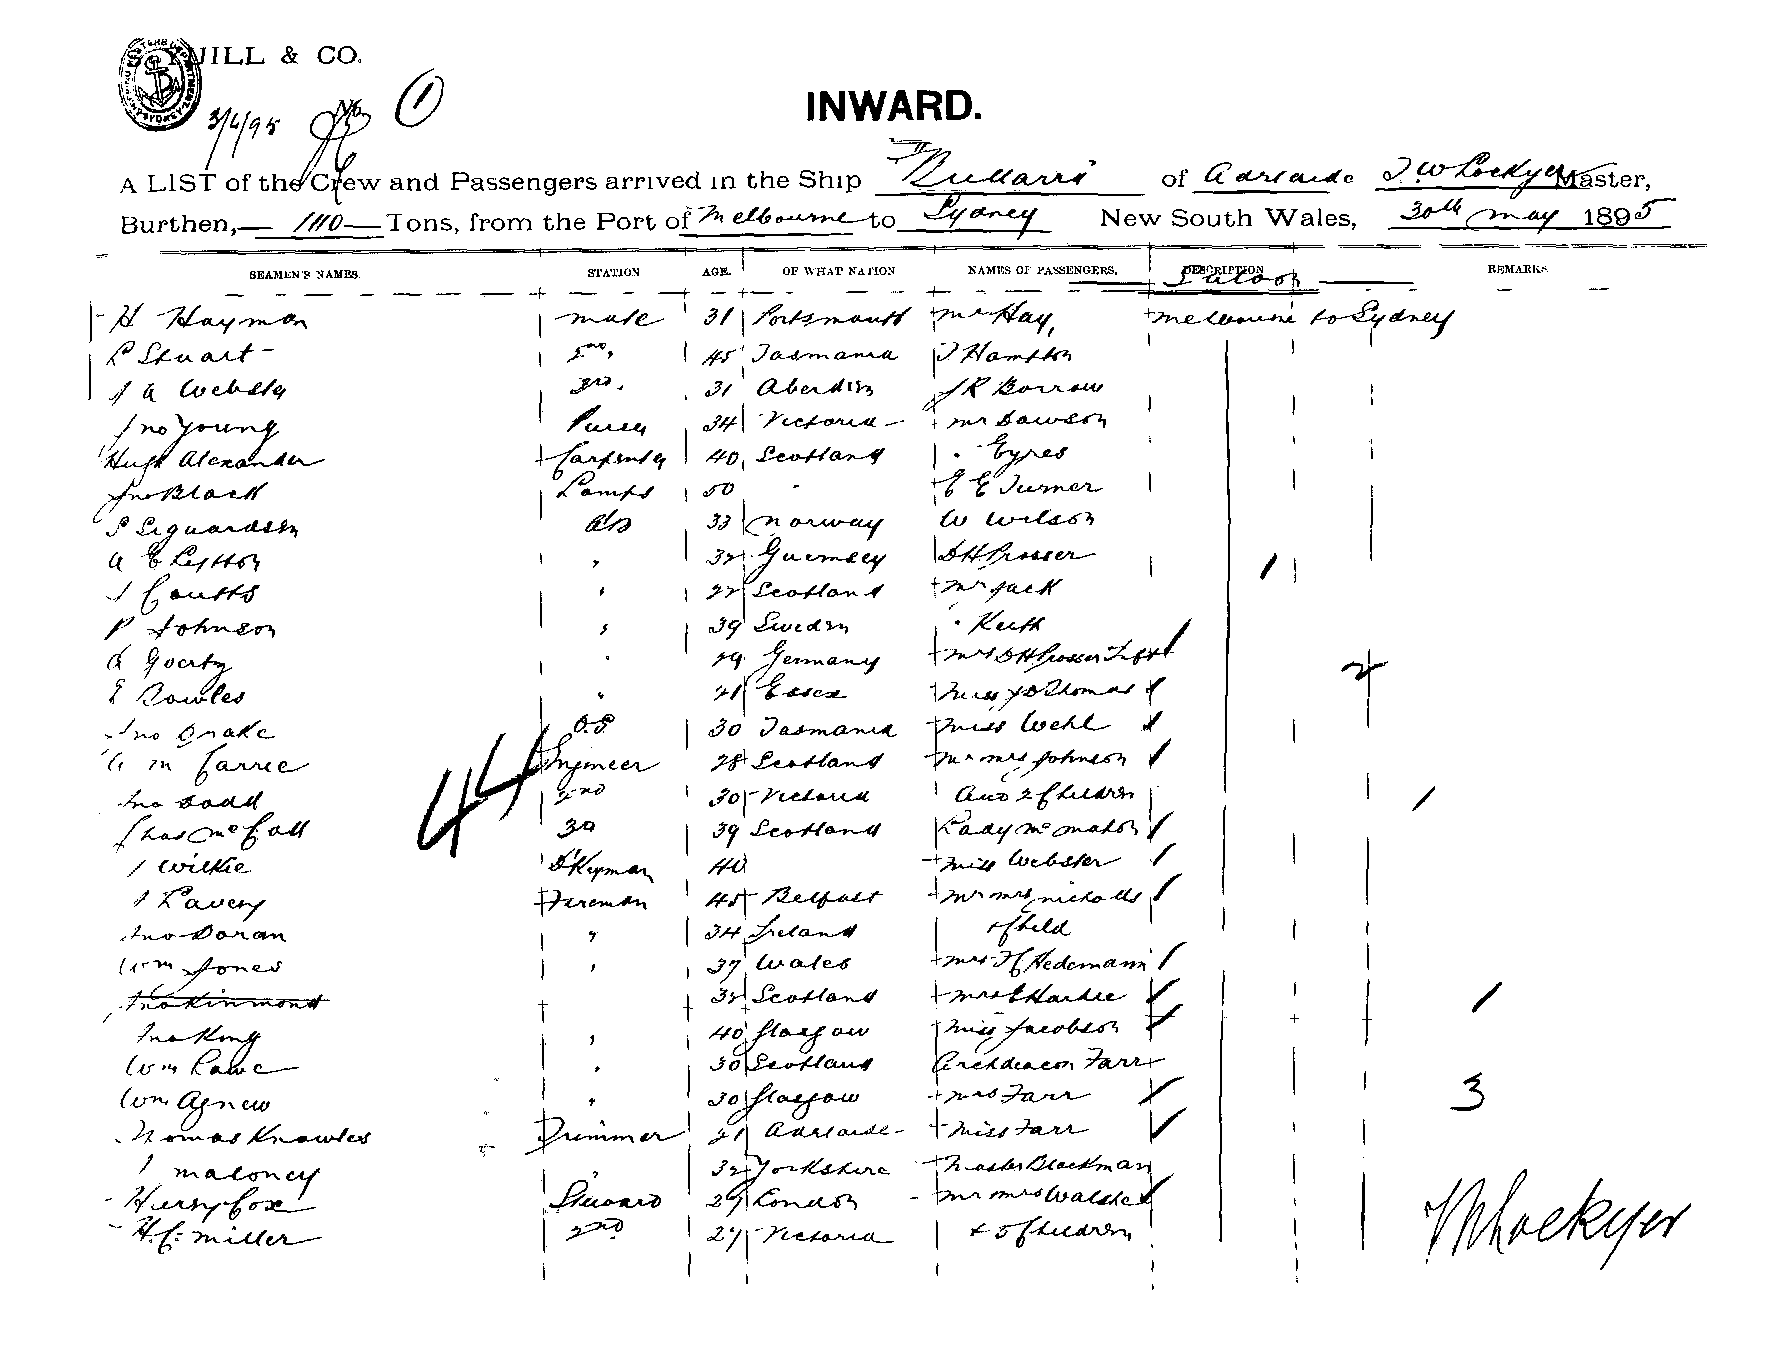 YUILL & CO.
3/6/95 1
INWARD.
A LIST of the Crew and Passengers arrived in the Ship Bullarra of Adelaide J W Lockyer Master,
Burthen, 1110 Tons, from the Port of Melbourne to Sydney New South Wales, 30th May 1895
SEAMEN'S NAMES. STATION AGE. OF WHAT NATION NAMES OF PASSENGERS, DESCRIPTION REMARKS
Saloon
H Hayman mate 31 Portsmouth Mr Hay, Melbourne to Sydney
Stuart 2nd, 45 Tasmania J Hampton
J A Webster 3rd. 31 Aberdeen J R Borrow
Jno Young Purser 34 Victoria Mr Dawson
Hugh Alexander Carpenter 40 Scotland " Eyres
Jno Black Lamps 50 " E E Turner
AB 33 Norway W Wilson
A E 32 Guernsey D H Prosser 1
J Coutts " 22 Scotland Mr Jack
P Johnson " 39 Sweden " Keith
" 29 Germany Mrs D H Prosser Inft
E Rowles " 21 Essex Miss Thomas 2
Jno Drake O.S. 30 Tasmania Miss Wehl
G M Carrie Engineer 28 Scotland Mr Mrs Johnson
Jno Dodd 2nd 30 Victoria And 2 Children 1
44
Chas McCall 3rd 39 Scotland Lady McMahon
J Wilkie D'Keyman 40 Miss Webster
J Lavery Fireman 45 Belfast Mr Mrs Nicholls
Jno Doran " 34 Ireland + Child
Wm Jones " 37 Wales Mrs Hedemann
Jno Kinmond 32 Scotland Mrs Hardie 1
Jno King " 40 Glasgow Miss Jacobson
Wm Lawe " 30 Scotland Archdeacon Farr
Wm Agnew " 30 Glasgow Mrs Farr 3
Thomas Knowles Trimmer 21 Adelaide Miss Farr
J Maloney " 32 Yorkshire Master Blackman
Henry Cox Steward 29 London Mr Mrs
H. C. Miller 2nd 27 Victoria + 5 Children
Lockyer